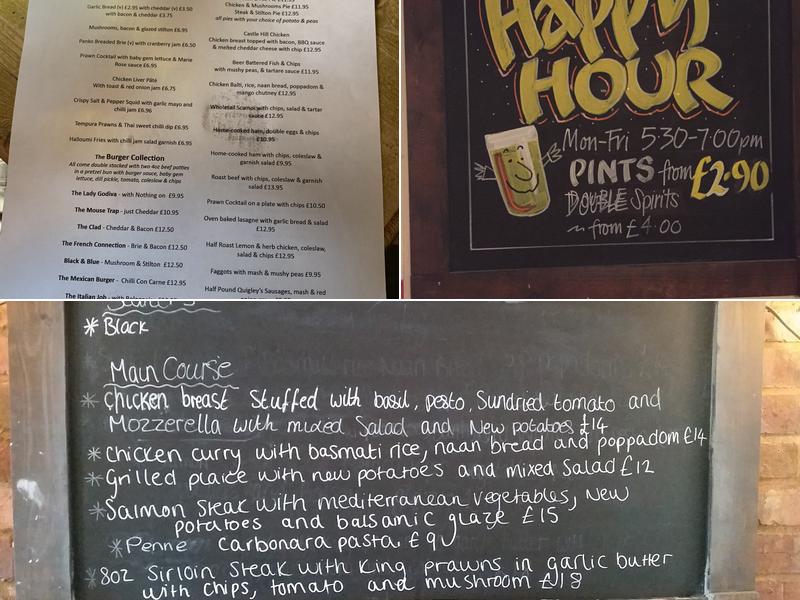 Garlic Bread (v) £2.95 with cheddar (v) £3.50
with bacon & cheddar £3.75
Mushrooms, bacon & glazed stilton £6.95
Panko Breaded Brie (v) with cranberry jam £6.50
Prawn Cocktail with baby gem lettuce & Marie
Rose sauce £6.95
Chicken Liver Pâté
With toast & red onion jam £6.75
Crispy Salt & Pepper Squid with garlic mayo and
chilli jam £6.96
Tempura Prawns & Thai sweet chilli dip £6.95
Halloumi Fries with chilli jam salad garnish £6.95
The Burger Collection
All come double stacked with two 4oz beef patties
in a pretzel bun with burger sauce, baby gem
lettuce, dill pickle, tomato, coleslaw & chips
The Lady Godiva - with Nothing on £9.95
The Mouse Trap - just Cheddar £10.95
The Clad - Cheddar & Bacon £12.50
The French Connection - Brie & Bacon £12.50
Black & Blue - Mushroom & Stilton £12.50
The Mexican Burger - Chilli Con Carne £12.95
The Italian Job - with
Chicken & Mushrooms Pie £11.95
Steak & Stilton Pie £12.95
all pies with your choice of potato & peas
Castle Hill Chicken
Chicken breast topped with bacon, BBQ sauce
& melted cheddar cheese with chip £12.95
Beer Battered Fish & Chips
with mushy peas, & tartare sauce £11.95
Chicken Balti, rice, naan bread, poppadom &
mango chutney £12.95
Wholetail Scampi with chips, salad & tartar
sauce £12.95
Home-cooked ham, double eggs & chips
£10.95
Home-cooked ham with chips, coleslaw &
garnish salad £9.95
Roast beef with chips, coleslaw & garnish
salad £13.95
Prawn Cocktail on a plate with chips £10.50
Oven baked lasagne with garlic bread & salad
£12.95
Half Roast Lemon & herb chicken, coleslaw,
salad & chips £12.95
Faggots with mash & mushy peas £9.95
Half Pound Quigley's Sausages, mash & red
Happy
HOUR
Mon-Fri 5:30-7:00pm
PINTS from £2.90
DOUBLE Spirits
~ from £4.00
* Black
Main Course
* Chicken breast Stuffed with basil, pesto, Sundried tomato and
Mozzerella with mixed Salad and New potatoes £14
* Chicken curry with basmati rice, naan bread and poppadom £14
* Grilled plaice with new potatoes and mixed Salad £12
* Salmon steak with mediterranean vegetables, New
potatoes and balsamic glaze £15
* Penne Carbonara pasta £9
* 8oz Sirloin Steak with King prawns in garlic butter
with chips, tomato and mushroom £18